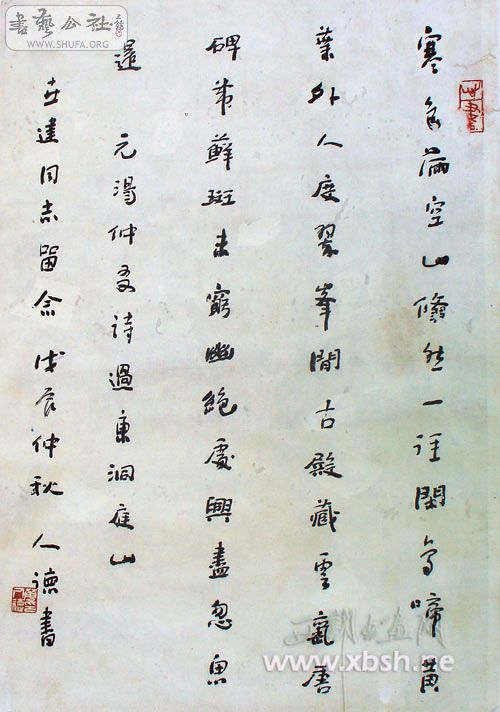 寒色滿空山翛然一径閑鳥啼黄
葉外人度翠峯間古殿藏雲氣唐
碑帶蘚斑未窮幽絕處興盡忽思
還 元湯仲友詩過東洞庭山
世建同志留念 戊辰仲秋 人德書
書藝公社
WWW.SHUFA.ORG
www.xbsh.ne